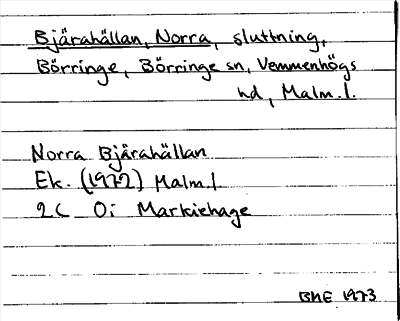 Bjärahällan, Norra, sluttning,
Börringe, Börringe sn, Vemmenhögs
hd, Malm.l.
Norra Bjärahällan
Ek. (1972) Malm.l.
2C 0i Markiehage
BME 1973